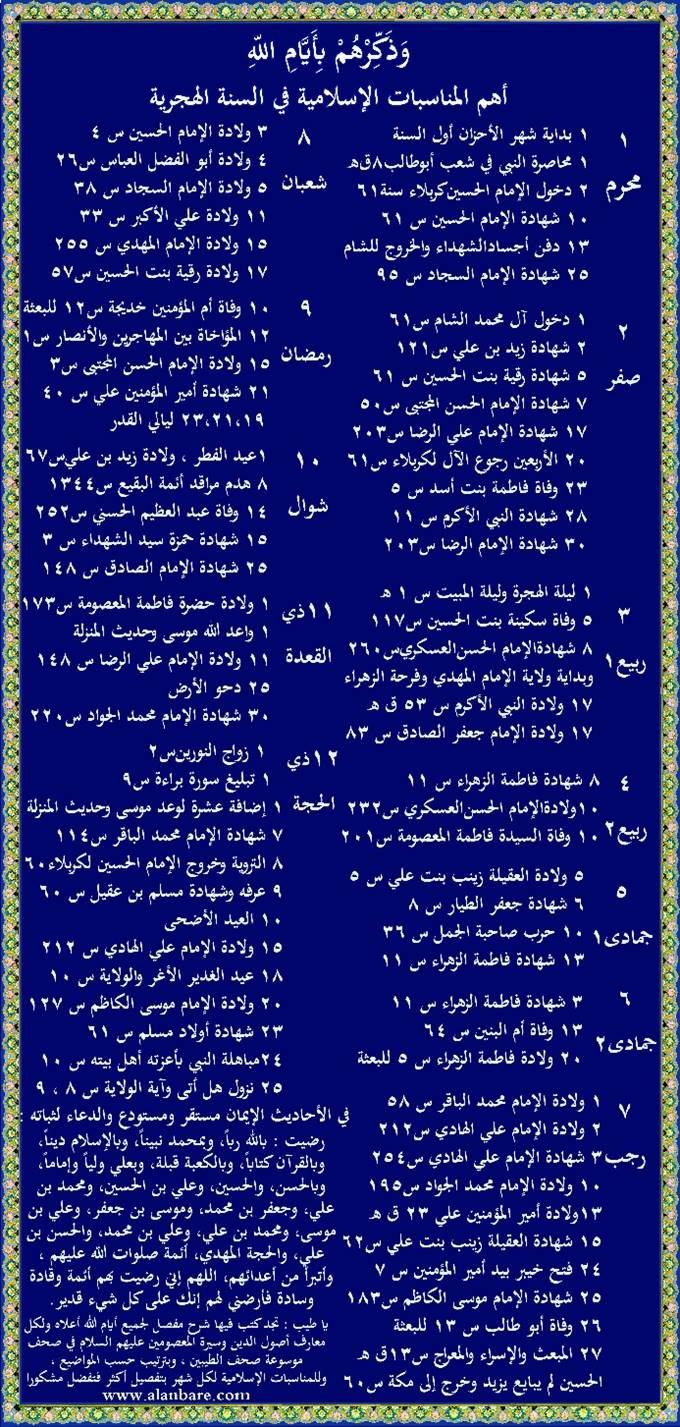 وَذَكِّرْهُمْ بِأَيَّامِ اللّهِ
أهم المناسبات الإسلامية في السنة الهجرية
١
محرم
١ بداية شهر الأحزان أول السنة
١ محاصرة النبي في شعب أبوطالب٨ق هـ
٢ دخول الإمام الحسين كربلاء سنة٦١
١٠ شهادة الإمام الحسين س ٦١
١٣ دفن أجسادالشهداء والخروج للشام
٢٥ شهادة الإمام السجاد س ٩٥
٢
صفر
١ دخول آل محمد الشام س٦١
٢ شهادة زيد بن علي س١٢١
٥ شهادة رقية بنت الحسين س ٦١
٧ شهادة الإمام الحسن المجتبى س٥٠
١٧ شهادة الإمام علي الرضا س٢٠٣
٢٠ الأربعين رجوع الآل لكربلاء س٦١
٢٣ وفاة فاطمة بنت أسد س ٥
٢٨ شهادة النبي الأكرم س ١١
٣٠ شهادة الإمام الرضا س٢٠٣
٣
ربيع١
١ ليلة الهجرة وليلة المبيت س ١ هـ
٥ وفاة سكينة بنت الحسين س١١٧
٨ شهادةالإمام الحسن العسكري س٢٦٠
وبداية ولاية الإمام المهدي وفرحة الزهراء
١٧ ولادة النبي الأكرم س ٥٣ ق هـ
١٧ ولادة الإمام جعفر الصادق س ٨٣
٤
ربيع٢
٨ شهادة فاطمة الزهراء س ١١
١٠ولادةالإمام الحسن العسكري س٢٣٢
١٠ وفاة السيدة فاطمة المعصومة س٢٠١
٥
جمادى١
٥ ولادة العقيلة زينب بنت علي س ٥
٦ شهادة جعفر الطيار س ٨
١٠ حرب صاحبة الجمل س ٣٦
١٣ شهادة فاطمة الزهراء س ١١
٦
جمادى٢
٣ شهادة فاطمة الزهراء س ١١
١٣ وفاة أم البنين س ٦٤
٢٠ ولادة فاطمة الزهراء س ٥ للبعثة
٧
رجب
١ ولادة الإمام محمد الباقر س ٥٨
٢ ولادة الإمام علي الهادي س٢١٢
٣ شهادة الإمام علي الهادي س٢٥٤
١٠ ولادة الإمام محمد الجواد س١٩٥
١٣ولادة أمير المؤمنين علي ٢٣ ق هـ
١٥ شهادة العقيلة زينب بنت علي س٦٢
٢٤ فتح خيبر بيد أمير المؤمنين س ٧
٢٥ شهادة الإمام موسى الكاظم س١٨٣
٢٦ وفاة أبو طالب س ١٣ للبعثة
٢٧ المبعث والإسراء والمعراج س١٣ق هـ
الحسين لم يبايع يزيد وخرج إلى مكة س٦٠
٨
شعبان
٣ ولادة الإمام الحسين س ٤
٤ ولادة أبو الفضل العباس س٢٦
٥ ولادة الإمام السجاد س ٣٨
١١ ولادة علي الأكبر س ٣٣
١٥ ولادة الإمام المهدي س ٢٥٥
١٧ ولادة رقية بنت الحسين س٥٧
٩
رمضان
١٠ وفاة أم المؤمنين خديجة س١٢ للبعثة
١٢ المؤاخاة بين المهاجرين والأنصار س١
١٥ ولادة الإمام الحسن المجتبى س٣
٢١ شهادة أمير المؤمنين علي س ٤٠
٢٣،٢١،١٩ ليالي القدر
١٠
شوال
١عيد الفطر ، ولادة زيد بن علي س٦٧
٨ هدم مراقد أئمة البقيع س١٣٤٤
١٤ وفاة عبد العظيم الحسني س٢٥٢
١٥ شهادة حمزة سيد الشهداء س ٣
٢٥ شهادة الإمام الصادق س ١٤٨
١١ذي
القعدة
١ ولادة حضرة فاطمة المعصومة س١٧٣
١ واعد الله موسى وحديث المنزلة
١١ ولادة الإمام علي الرضا س ١٤٨
٢٥ دحو الأرض
٣٠ شهادة الإمام محمد الجواد س٢٢٠
١٢ذي
الحجة
١ زواج النورين س٢
١ تبليغ سورة براءة س٩
١ إضافة عشرة لوعد موسى وحديث المنزلة
٧ شهادة الإمام محمد الباقر س١١٤
٨ التروية وخروج الإمام الحسين لكربلاء٦٠
٩ عرفه وشهادة مسلم بن عقيل س ٦٠
١٠ العيد الأضحى
١٥ ولادة الإمام علي الهادي س ٢١٢
١٨ عيد الغدير الأغر والولاية س ١٠
٢٠ ولادة الإمام موسى الكاظم س ١٢٧
٢٣ شهادة أولاد مسلم س ٦١
٢٤مباهلة النبي بأعزته أهل بيته س ١٠
٢٥ نزول هل أتى وآية الولاية س ٨ ، ٩
في الأحاديث الإيمان مستقر ومستودع والدعاء لثباته :
رضيت : بالله رباً، وبمحمد نبيناً، وبالإسلام ديناً،
وبالقرآن كتاباً، وبالكعبة قبلة، وبعلي ولياً وإماماً،
وبالحسن، والحسين، وعلي بن الحسين، ومحمد بن
علي، وجعفر بن محمد، وموسى بن جعفر، وعلي بن
موسى، ومحمد بن علي، وعلي بن محمد، والحسن بن
علي، والحجة المهدي، أئمة صلوات الله عليهم ،
وأتبرأ من أعدائهم، اللهم إني رضيت بهم أئمة وقادة
وسادة فأرضني لهم إنك على كل شيء قدير.
يا طيب : تجد كتب فيها شرح مفصل لجميع أيام الله أعلاه ولكل
معارف أصول الدين وسيرة المعصومين عليهم السلام في صحف
موسوعة صحف الطيبين ، وبترتيب حسب المواضيع ،
وللمناسبات الإسلامية لكل شهر بتفصيل أكثر فتفضل مشكورا
www.alanbare.com